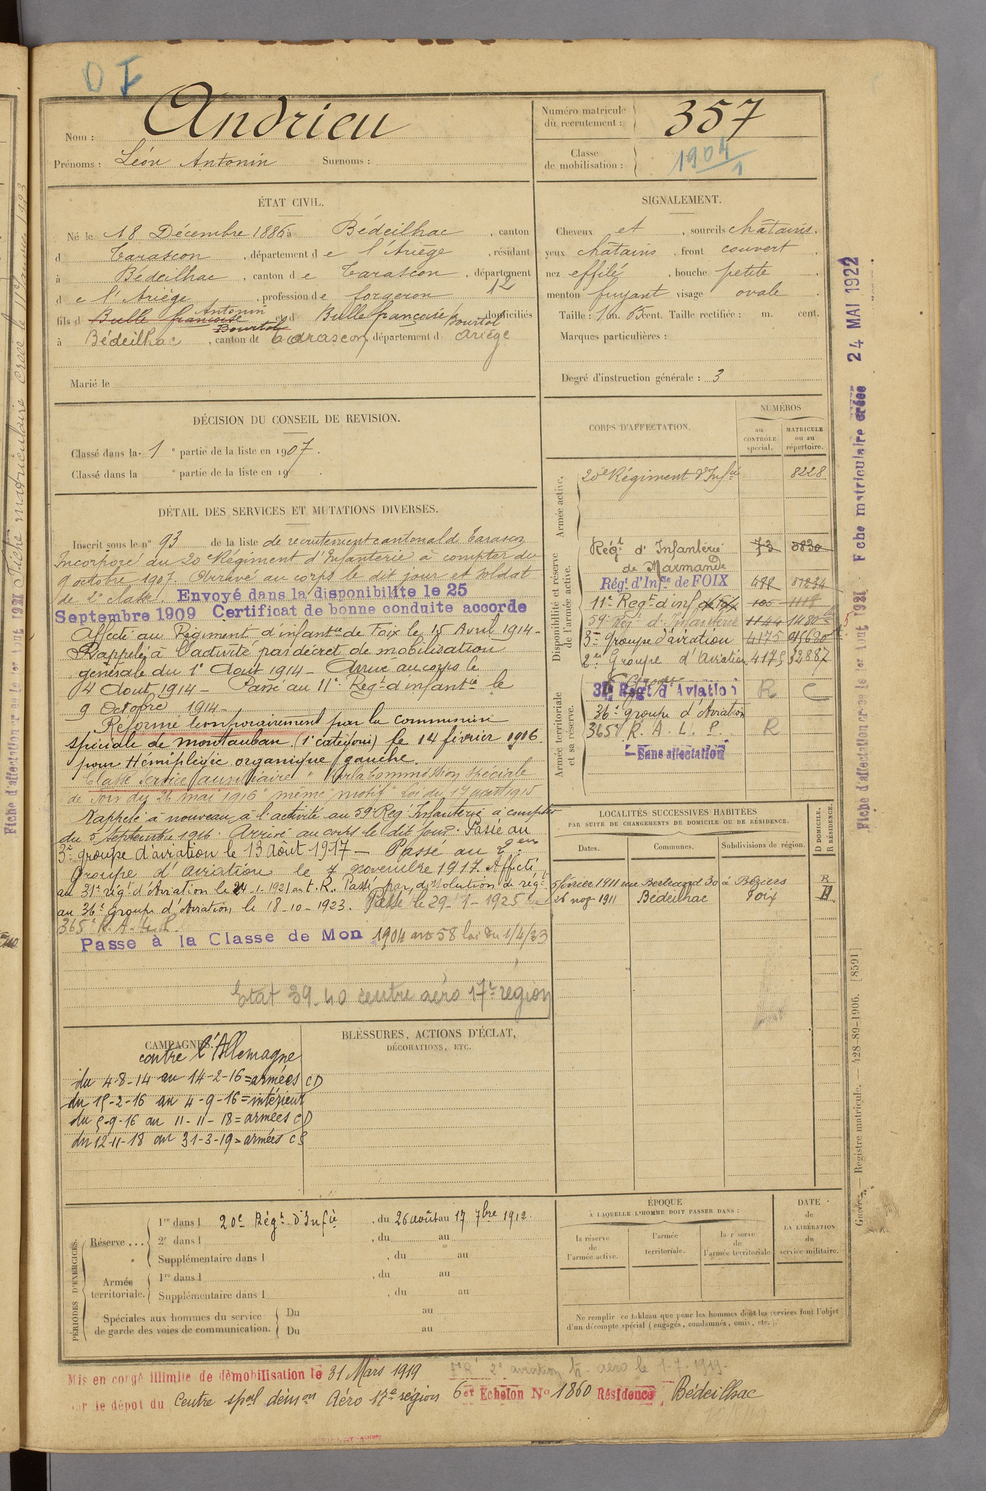 Nom : Andrieu
Prénoms : Léon Antonin Surnoms :
Numéro matricule du recrutement : 357
Classe de mobilisation : 1904/1
ÉTAT CIVIL.
Né le 18 Décembre 1886 à Bédeilhac , canton
d Tarascon , département de l'Ariège , résidant
à Bédeilhac , canton de Tarascon , département
de l'Ariège , profession de forgeron 12
fils d Bulle françoise Antonin et d Bulle françoise domiciliés
Bourtol Bourtol
à Bédeilhac , canton de Tarascon département d Ariège
Marié le
SIGNALEMENT.
Cheveux et , sourcils châtains.
yeux châtains , front couvert
nez effilé , bouche petite
menton fuyant visage ovale
Taille : 1m. cent. Taille rectifiée : m. cent.
Marques particulières :
Degré d'instruction générale : 3
DÉCISION DU CONSEIL DE REVISION.
Classé dans la 1e partie de la liste en 1907.
Classé dans la e partie de la liste en 19
DÉTAIL DES SERVICES ET MUTATIONS DIVERSES.
Inscrit sous le n° 93 de la liste de recrutement cantonal de Tarascon
Incorporé du 20e Régiment d'Infanterie à compter du
9 octobre 1907. Arrivé au corps le dit jour et soldat
de 2e classe. Envoyé dans la disponibilité le 25
Septembre 1909 Certificat de bonne conduite accorde
Affecté au Régiment d'infantie de Foix le 15 Avril 1914 -
Rappelé à l'activité par décret de mobilisation
générale du 1er Aout 1914 - Arrivé au corps le
4 Aout 1914 - Passé au 11e Regt d'infantie le
9 Octobre 1914 -
Réformé temporairement par la commission
spéciale de Montauban (1e catégorie) le 14 février 1916
pour Hémiplégie organique gauche.
Classé service auxiliaire par la commission spéciale
de Foix du 24 mai 1916 même motif loi du 17 août 1915
Rappelé à nouveau à l'activité au 59e Reg Infanterie à compter
du 5 septembre 1916. Arrivé au corps le dit jour. Passé au
3e groupe d'aviation le 13 Août 1917 - Passé au 2e
Groupe d'Aviation le 7 novembre 1917. Affecté
au 31e régt d'Aviation le 1-1921 Passé par dissolution de régt
au 36e Groupe d'Aviation le 18-10-1923. Passé le 29-1-1925 au
365e R.A.L.P.
Passe à la Classe de Mon 1904 art 58 loi du 1/4/23
Etat 39-40 centre aéro 17e région
CORPS D'AFFECTATION.
NUMÉROS
au CONTRÔLE spécial.
MATRICULE ou au répertoire.
Armée active.
20e Régiment d'Infie 8228
Disponibilité et réserve de l'armée active.
Régt d'Infanterie de Marmande 73
Régt d'Infie de FOIX
11e Regt d'inf
59e Régt d'Infanterie 1144
3e Groupe d'aviation 4175
2e Groupe d'Aviation 4175 32887
Armée territoriale et sa réserve.
31e Regt d'Aviation R C
36e groupe d'Aviation
365e R. A. L. P. R
Sans affectation
LOCALITÉS SUCCESSIVES HABITÉES
PAR SUITE DE CHANGEMENTS DE DOMICILE OU DE RÉSIDENCE.
Dates. Communes. Subdivisions de région. D DOMICILE. R RÉSIDENCE.
5 février 1911 rue Bertrand 30 à Béziers R
26 nov 1911 Bédeilhac Foix
CAMPAGNES.
contre l'Allemagne
du 4-8-14 au 14-2-16 = armées CD
du 15-2-16 au 4-9-16 = intérieur
du 5-9-16 au 11-11-18 = armées CD
du 12-11-18 au 31-3-19 = armées CS
BLESSURES, ACTIONS D'ÉCLAT,
DÉCORATIONS, ETC.
PÉRIODES D'EXERCICES.
Réserve ...
1re dans l 20e Régt d'Infie , du 26 août au 17 7bre 1912.
2e dans l , du au
Supplémentaire dans l , du au
Armée territoriale.
1re dans l , du au
Supplémentaire dans l , du au
Spéciales aux hommes du service de garde des voies de communication.
Du au
Du au
ÉPOQUE
A LAQUELLE L'HOMME DOIT PASSER DANS :
la réserve de l'armée active.
l'armée territoriale.
la réserve de l'armée territoriale
DATE de LA LIBÉRATION du service militaire.
Ne remplir ce tableau que pour les hommes dont les services font l'objet
d'un décompte spécial (engagés, condamnés, omis, etc.).
Mis en congé illimité de démobilisation le 31 Mars 1919
r le dépot du Centre spal démon Aéro 17e région 6e Echelon No 1860 Résidence Bédeilhac
2e aviation aéro le 1-7-1919.
Fiche matriculaire créée 24 MAI 1922
Registre matricule. — 428-89-1906. [8591]